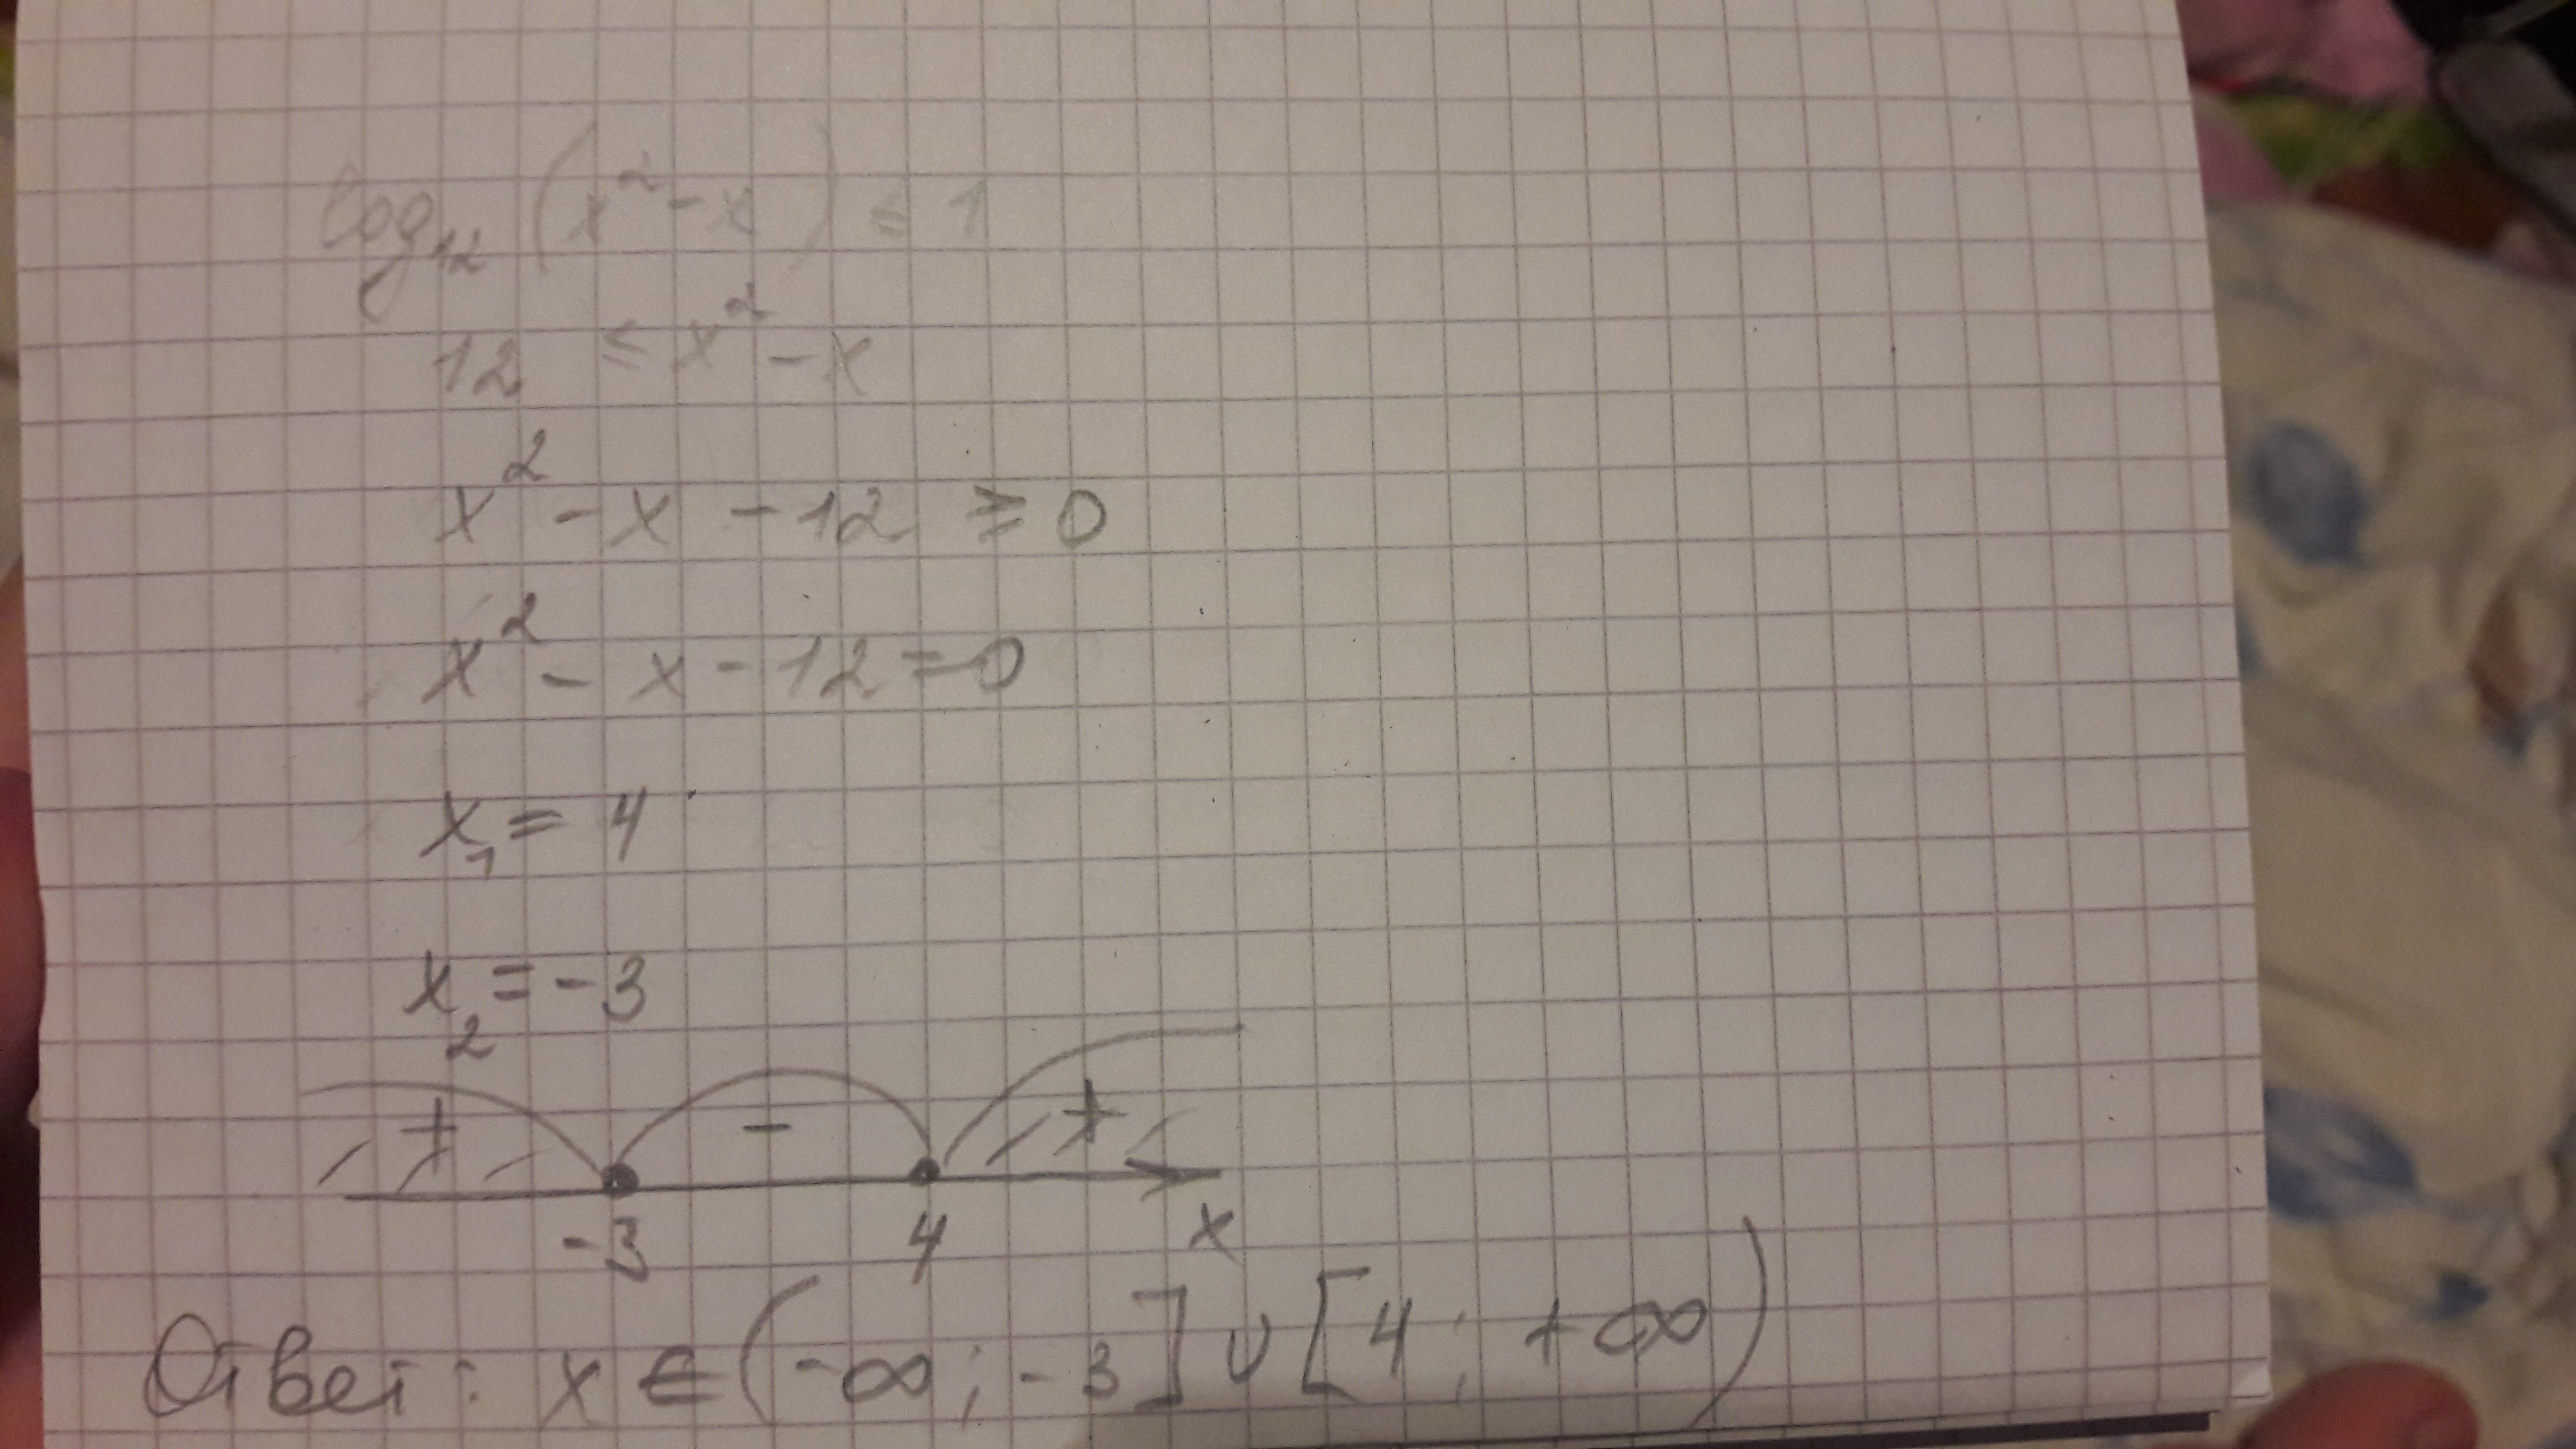 log₁₂ (x² - x) ≤ 1
12 ≤ x² - x
x² - x - 12 ≥ 0
x² - x - 12 = 0
x₁ = 4
x₂ = -3
+ - +
-3 4 x
Ответ: x ∈ (-∞; -3] ∪ [4; +∞)